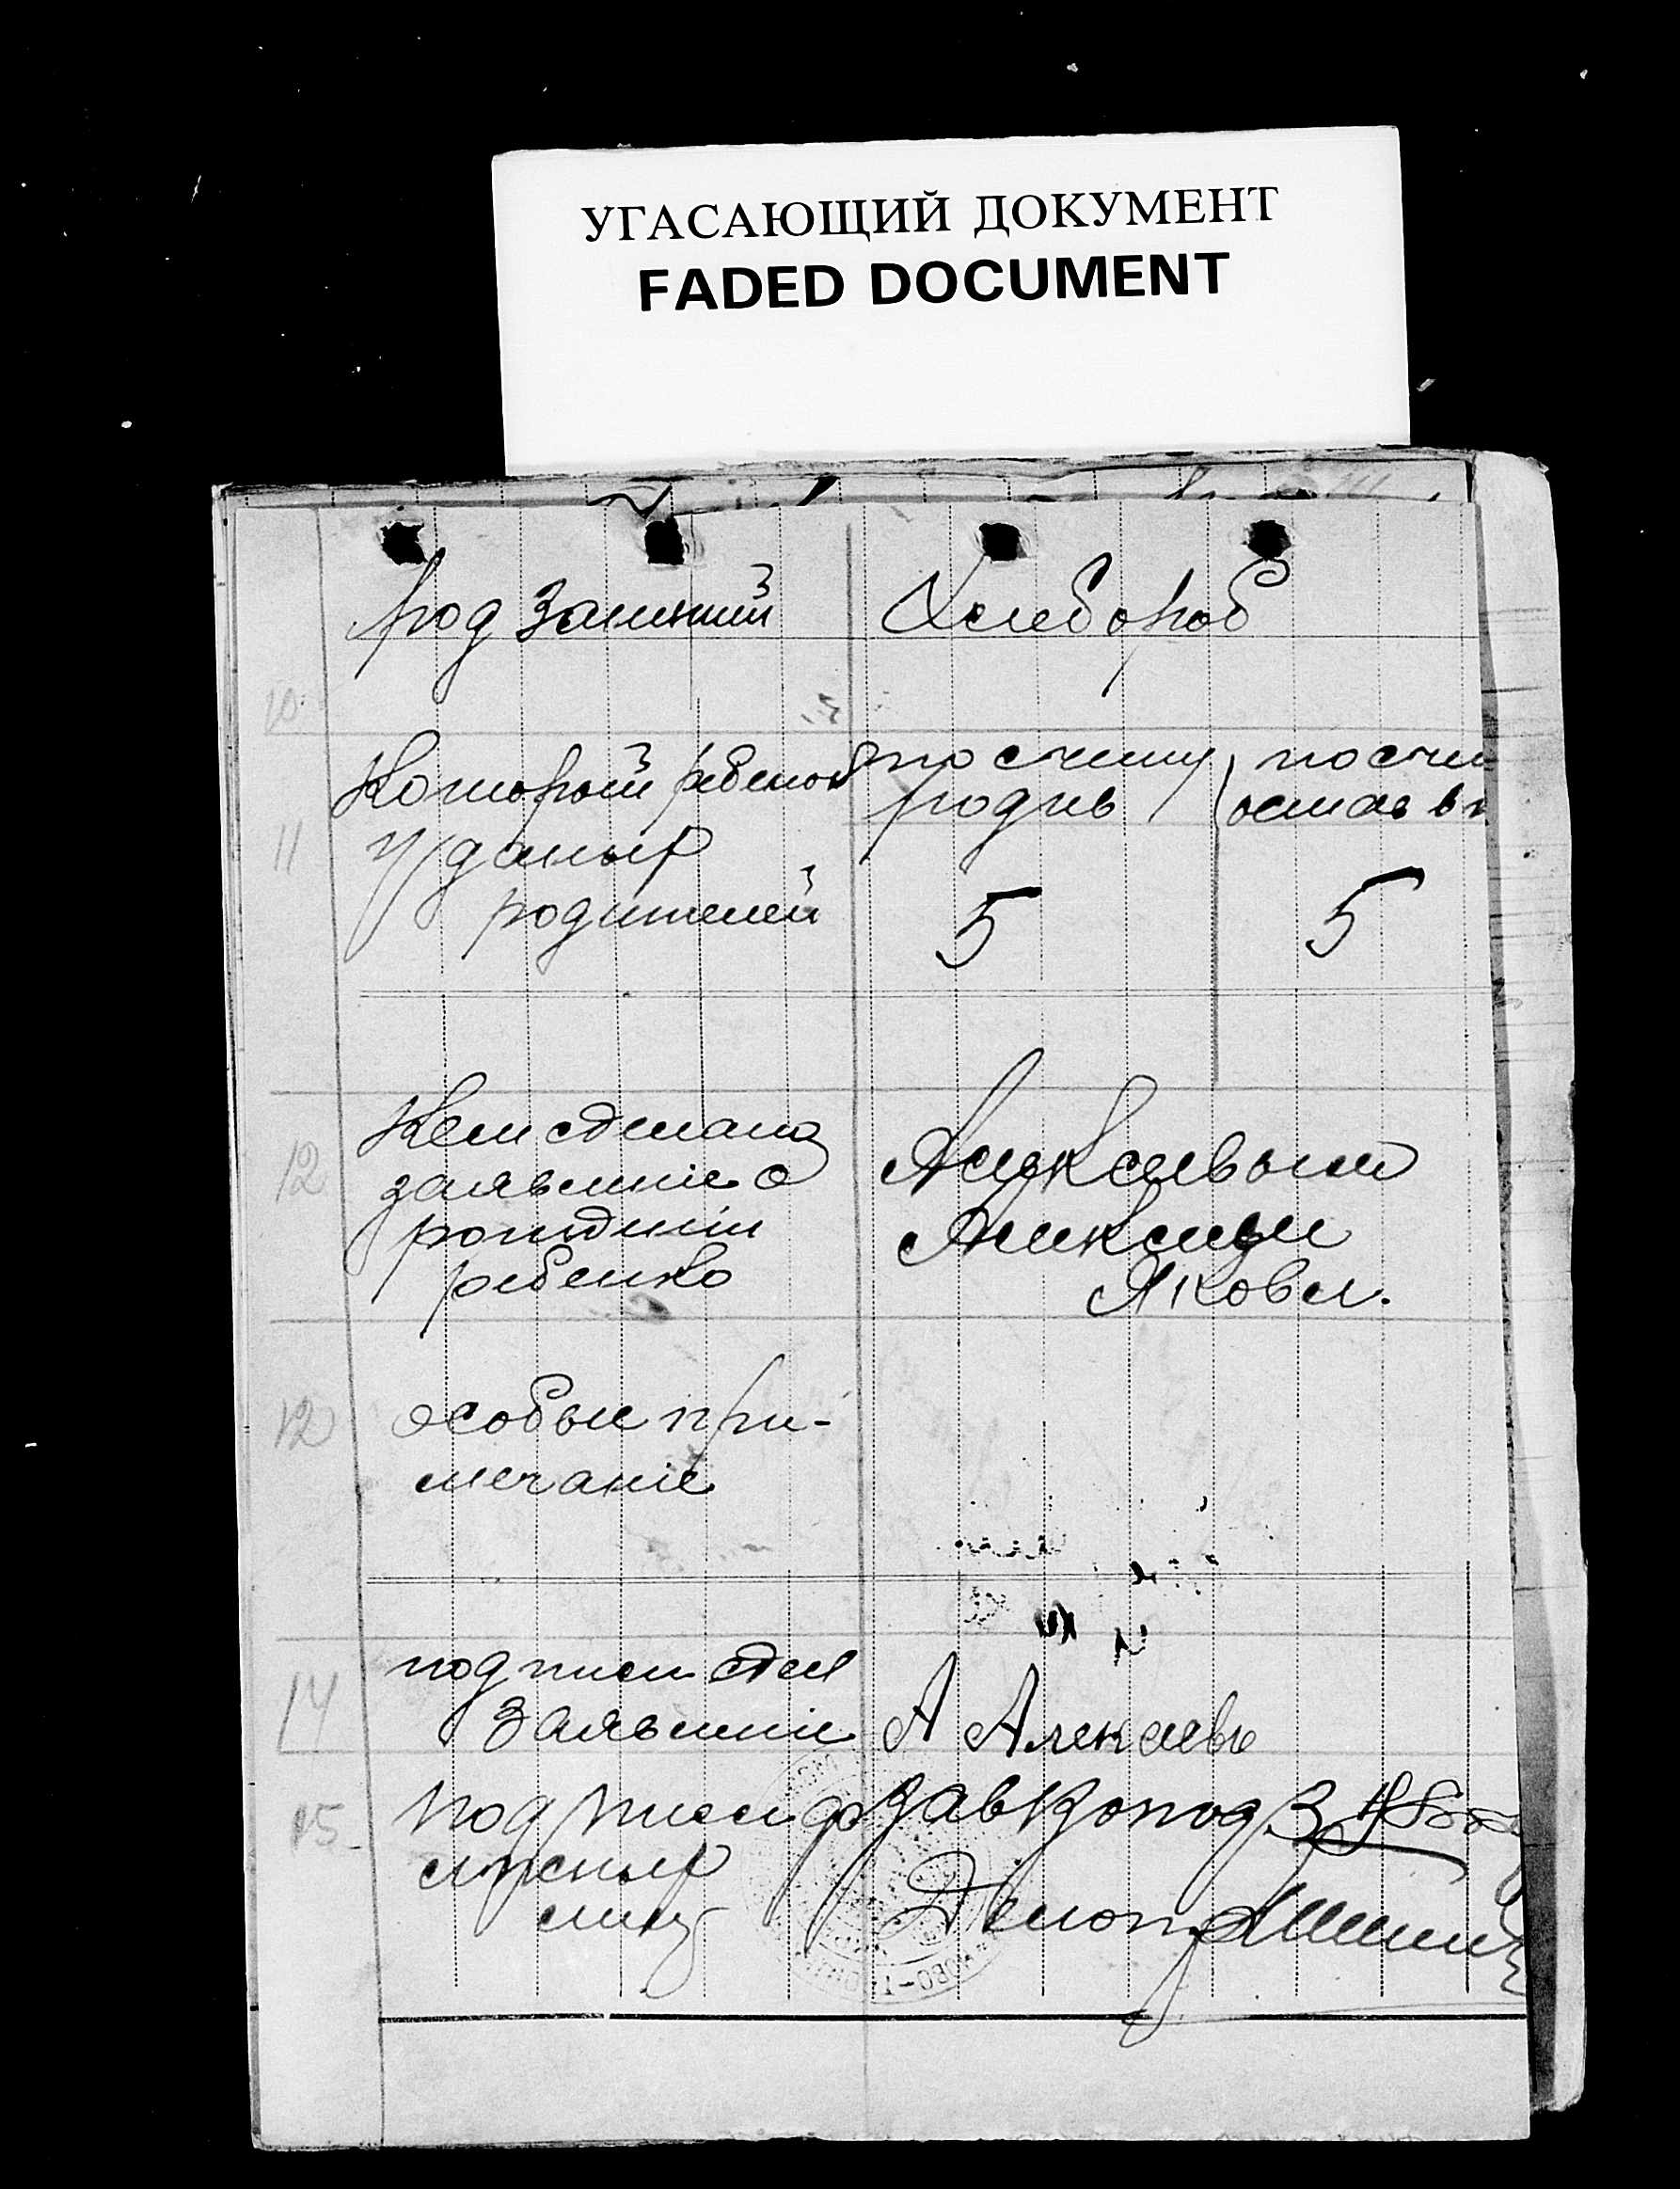 УГАСАЮЩИЙ ДОКУМЕНТ
FADED DOCUMENT
род занятий
Хлебороб
10
11
Которой ребенок
у даных
родителей
по счету
родив
по сче
остав в
5
5
12
Кем сделано
заявление о
рождении
ребенка
Алексеевым
Алексеем
Яковл.
12
особые при-
мечание
14
подписи сдел
заявление
А Алексеевъ
15
подписи до
лжсных
лиц
Завкоподз
Делопр